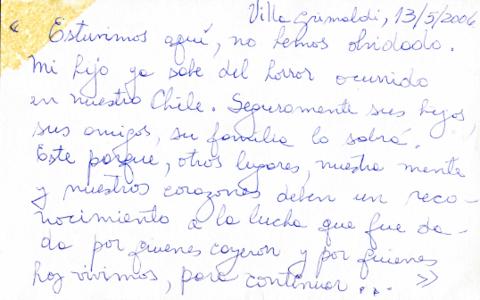 Villa Grimaldi, 13/5/2006
“ Estuvimos aquí, no hemos olvidado.
Mi hijo ya sabe del horror ocurrido
en nuestro Chile. Seguramente sus hijos,
sus amigos, su familia lo sabrá.
Este parque, otros lugares, nuestra mente
y nuestros corazones deben un reco-
nocimiento a la lucha que fue da-
da por quienes cayeron y por quienes
hoy vivimos, para continuar... »